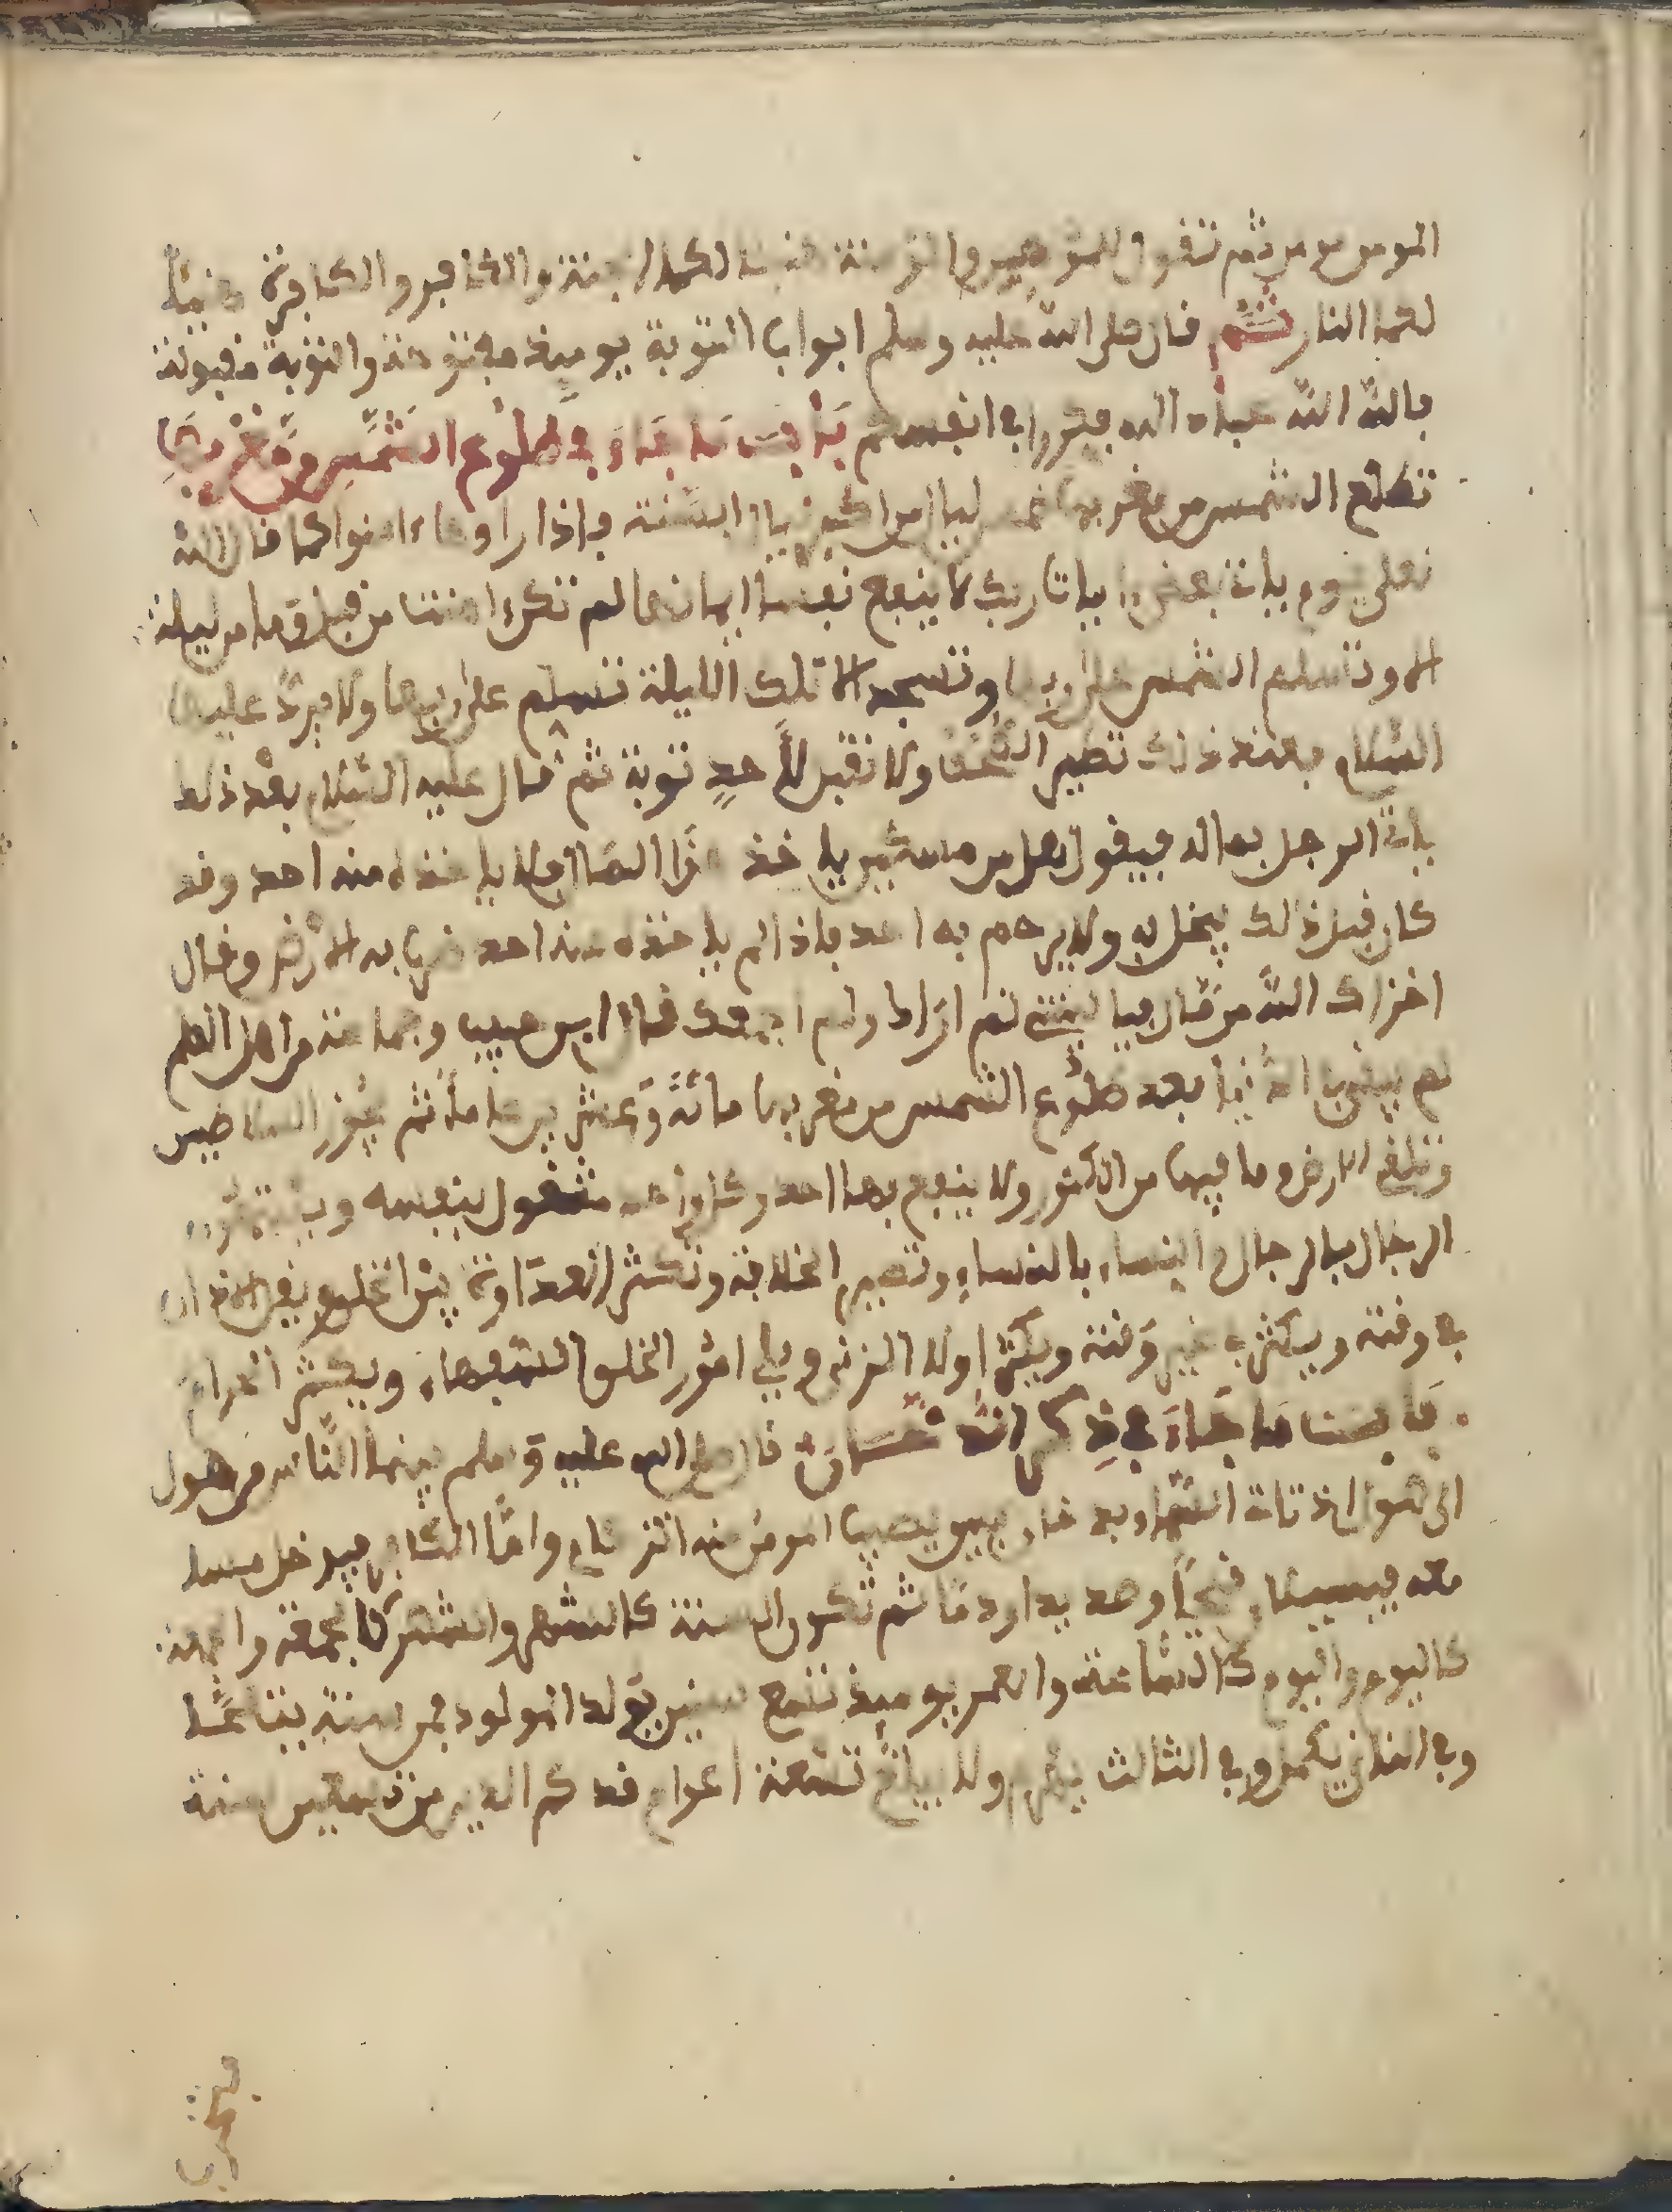 المومن من ثم تقول للمومنين والمومنة هنيئا لكما الجنة والكافر والكافرة هنيئا
لكما النار ثم قال صلى الله عليه وسلم ابواب التوبة يوميذ مفتوحة والتوبة مقبولة
بالله الله عباد الله فكروا في انفسكم باب ما جاء في طلوع الشمس من مغربها
تطلع الشمس من مغربها خمس ليال من اكبر ليال السنة فاذا راوها ءامنوا كما قال الله
تعلى يوم ياتي بعض ءايات ربك لا ينفع نفسا ايمانها لم تكن ءامنت من قبل وما من ليلة
الا وتسلم الشمس على ربها وتسجد الا تلك الليلة تسلم على ربها ولا يرد عليها
السلام فعند ذلك تطير الصحف ولا تقبل لاحد توبة ثم قال عليه السلام بعد ذلك
ياتي الرجل بماله فيقول هل من مسكين ياخذ هذا المال فلا ياخذه منه احد وقد
كان قبل ذلك يبخل به ولا يرحم به احد فاذا لم ياخذه منه احد ضرب به الارض وقال
اخزاك الله من مال فيا ليتني لم اراك ولم اجمعك قال ابن حبيب وجماعة من اهل العلم
لم يبق من الدنيا بعد طلوع الشمس من مغربها مائة وعشرين عاما ثم يجوز السلاطين
وتلقي الارض ما فيها من الكنوز ولا ينفع بها احد وكل واحد مشغول بنفسه
الرجال بالرجال والنساء بالنساء وتصير الخلافة وتكثر العداوة بين الخلق
في وقته ويكثر في غير وقته ويكثر اولاد الزنى ويلي امور الخلق السفهاء ويكثر الحرام
باب ما جاء في ذكر الدخان قال صلى الله عليه وسلم بينما الناس من هول
الى هول اذ تات السماء بدخان مبين يصيب المومن منه الزكام واما الكافر فيدخل مسا
مته ثم تكون السنة كالشهر والشهر كالجمعة والجمعة
كاليوم واليوم كالساعة والعمر يوميذ تسع سنين يولد المولود في سنة
وفي الثاني يكمل وفي الثالث يهرم ولا يبلغ تسعة اعوام